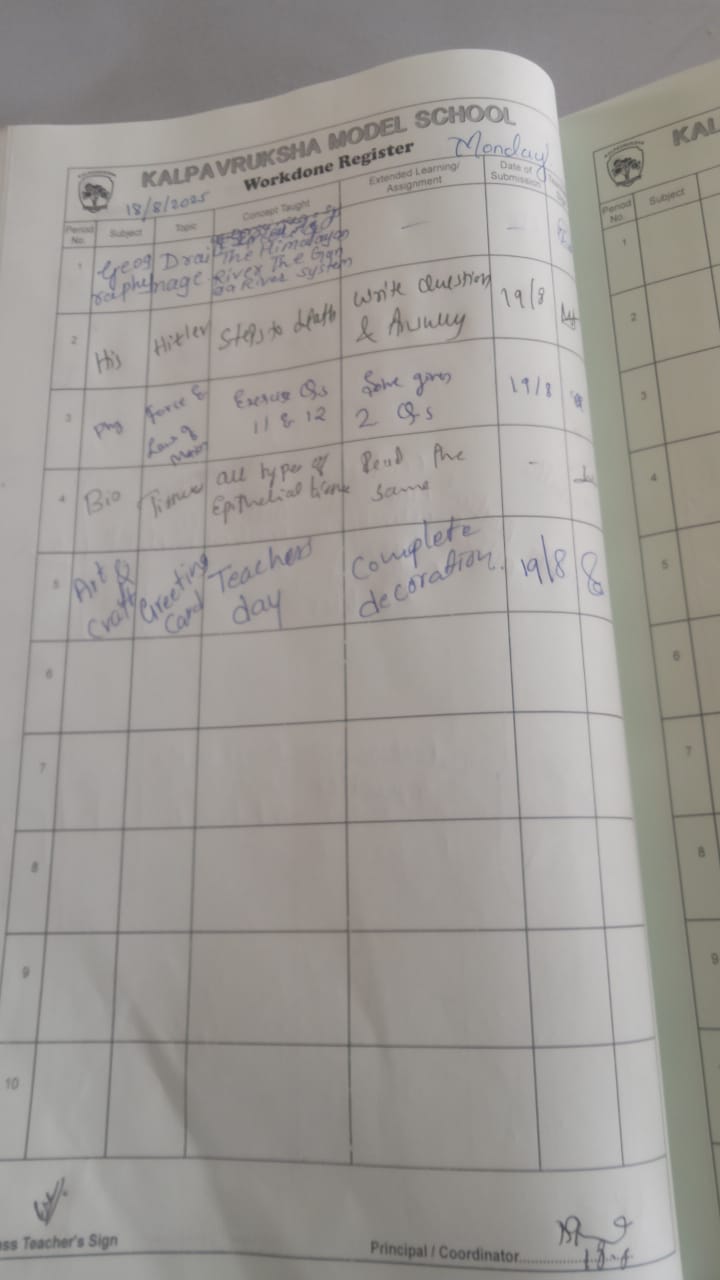 KALPAVRUKSHA MODEL SCHOOL
Workdone Register
Monday
18/8/2025
Period No. Subject Topic Concept Taught Extended Learning/ Assignment Date of Submission
1 Geog raphy Drai nage The Himalayan River The Gan ga River System — —
2 His Hitler Steps to death Write Question & Answer 19/8
3 Phy Force & Law of Motion Exercise Qs 11 & 12 Solve given 2 Qs 19/8
4 Bio Tissues all types of Epithelial tissue Read the same -
5 Art & Craft Greeting Card Teachers day Complete decoration. 19/8
6
7
8
9
10
ss Teacher's Sign
Principal / Coordinator
KAL
Period No. Subject
1
2
3
4
5
6
7
8
9